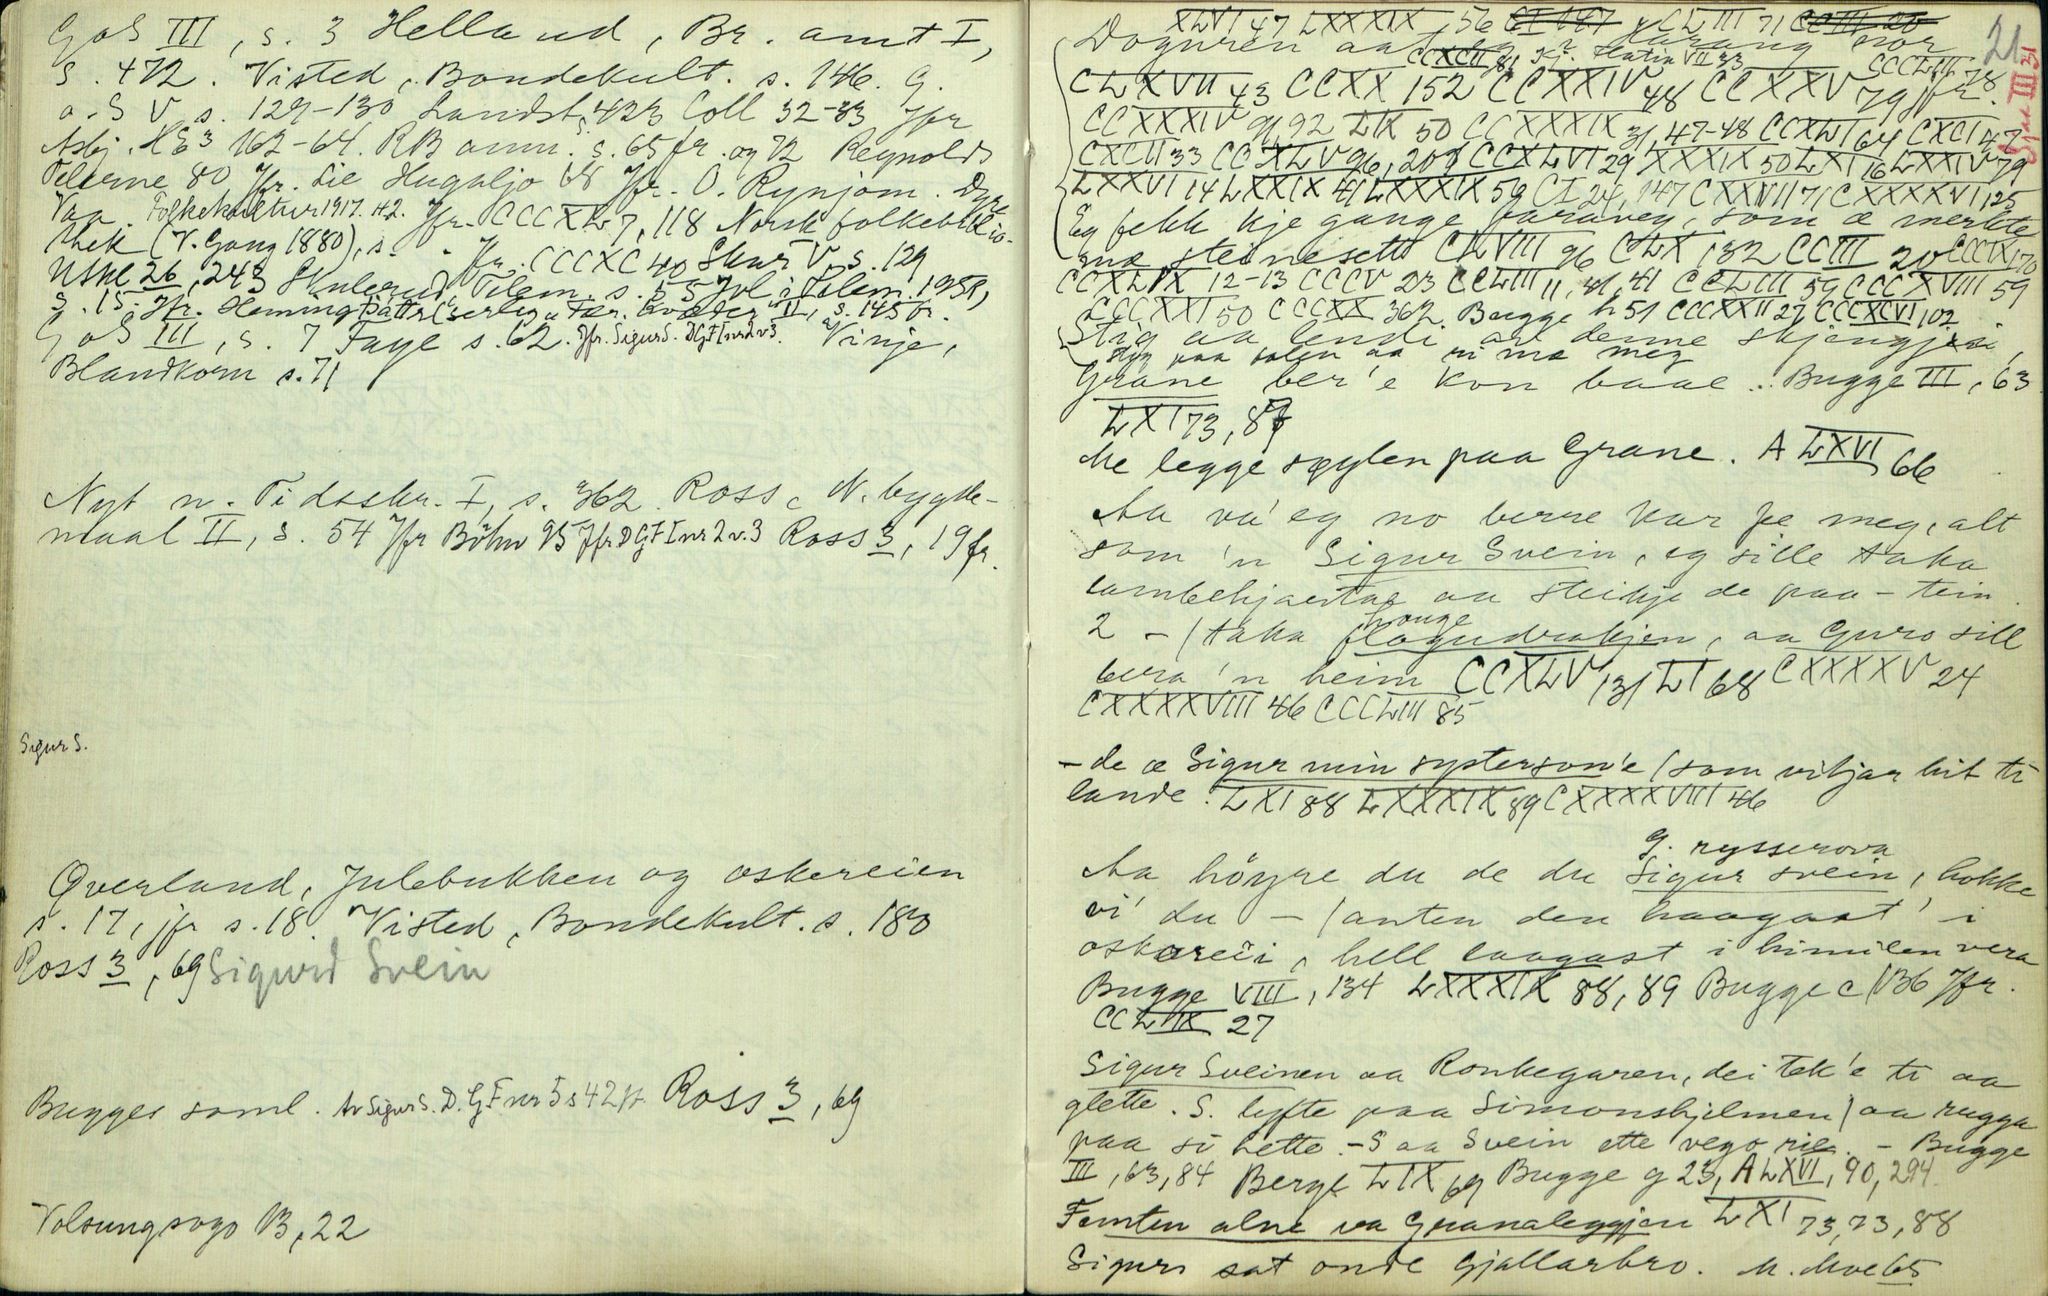 GoS III, s. 3 Helland, Br. amt I,
s. 472. Visted, Bondekult. s. 146. G.
o. S V s. 129-130 Landst. s. 423 Coll 32-33 Jfr
Asbj. HE3 162-64. RB anm. s. 65 fr. og 72 Reynolds
Telerne 80 Jfr. Lie Hugaljo 68 Jfr. O. Rynjom. Dyre
Vaa. Folkekultur 1917. H2. Jfr. CCCXL 7, 118 Norsk folkebiblio-
thek (V. Gang 1880), s. Jfr. CCCXC 40 Skar V s. 129
NSKL 26, 243 Skulerud Telem. s. 55 Jol i Telem. 1951,
s. 15. Jfr. Hemingþáttr særleg Fær. kvæder II, s. 145 fr.
GoS III, s. 7 Faye s. 62. Jfr. Sigur S. DGF I nr 2 v 3. Vinje,
Blandkorn s. 71
Nyt n. Tidsskr. I, s. 362 Ross, N. bygde-
maal II, s. 54 Jfr Böhn 95 Jfr DGF I nr 2 v. 3 Ross 3, 19 fr.
Sigur S.
Øverland, Julebukken og oskereien
s. 17, jfr s. 18. Visted, Bondekult. s. 180
Ross 3, 69 Sigurd Svein
Bugges saml. Av Sigur S. D.G.F nr 5 s 42 Ross 3, 69
Volsungsogo B, 22
21
III 31
XLVI 47 LXXXIX, 56 CI 147 CLIII 71 CCIII 20
Doguren aa
CCXCII 81 Kj. VII 33 CCCLIII 78
CLXVII 43 CCXX 152 CCXXIV 48 CCXXV 79 jfr.
CCXXXIV 91, 92 LIX 50 CCXXXIX 31, 47-48 CCXLI 64 CXCI 47
CXCII 33 CCXLV 96, 201 CCXLVI 29 XXXIX 50 LXI 16 LXXIV 79
LXXVI 14 LXXIX 41 LXXXIX 56 CI 24, 147 CXXVII 71 CXXXXVI 125
Eg fekk kje gange faraveg, som æ merkte
mæ steinesett CLVIII 96 CLX 132 CCIII 20 CCCIX 170
CCXLIX 12-13 CCCV 23 CCLIII 11, 41, 41 CCLIII 59 CCCXVIII 59
CCCXXI 50 CCCXX 362 Bugge h 51 CCCXXII 27 CCCXCVI, 102
Stig aa lendi av denne skjengjesi,
stig paa solen aa ri mæ meg
Grane ber'e kon baae .. Bugge III, 63
LXI 73, 87
Me legge søylen paa Grane. A LXVI 66
Aa va' eg no berre kar fe meg, alt
som 'n Sigur Svein, eg sille taka
lambehjartae aa steikje de paa - tein.
houge
2 - / taka flogudrakjen, aa Guro sill
bera 'n heim CCXLV 131 LI 68 CXXXXV 24
CXXXXVIII 46 CCCLIII 85
- de æ Sigur min systerson'e / som viljar hit ti
lande. LXI 88 LXXXIX 89 CXXXXVIII 46
G. rysserova
Aa höyre du de du Sigur Svein, hokke
vi' du - / anten den haagast' i
oskareii, hell laagast i himilen vera
Bugge VIII, 134 LXXXIX 88, 89 Bugge c 136 Jfr.
CCLIX 27
Sigur Sveinen aa Ronkegaren, dei tek'e ti aa
glette. S. lyfte paa simonshjelmen / aa rugga
paa si hette. - S aa Svein ette vego rie. - Bugge
III, 63, 84 Berge LIX 69 Bugge g 23, A LXVI, 90, 294.
Femten alne va Granaleggjen LXI 73, 73, 88
Sigurs sat onde Gjallarbro. M. Moe 65